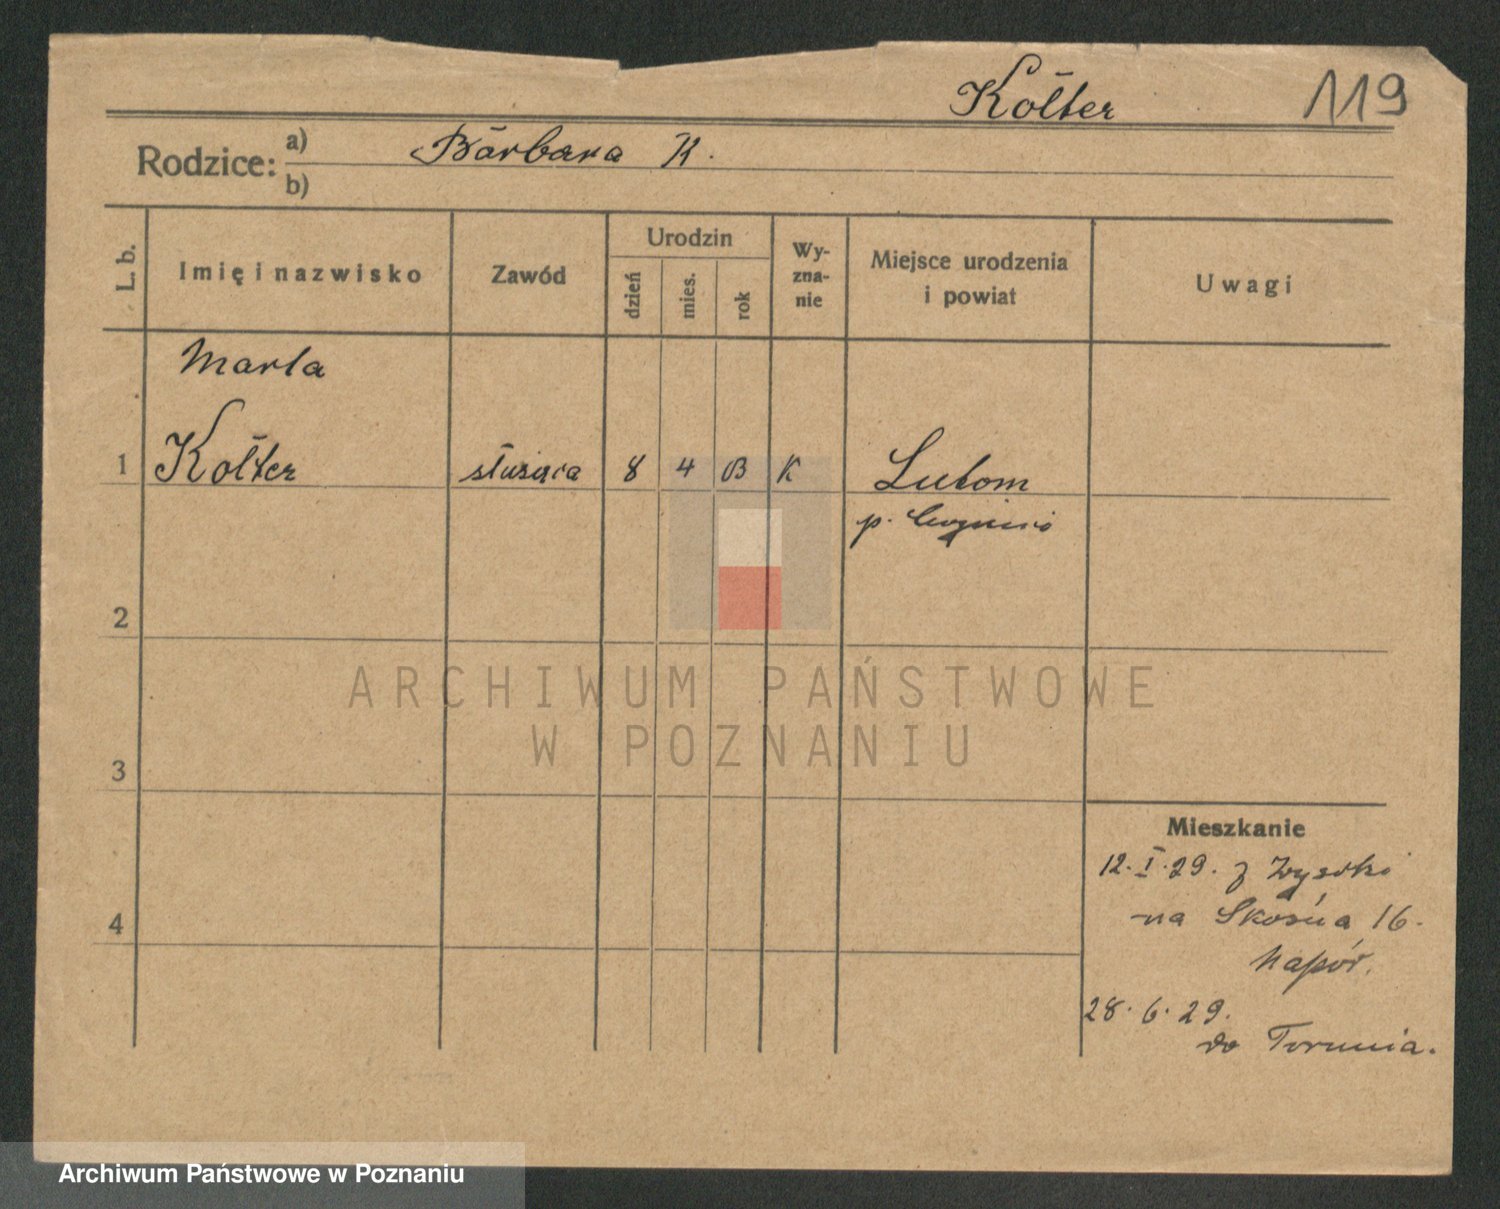 Kołter 119
Rodzice: a) Barbara K.
b)
L. b. Imię i nazwisko Zawód Urodzin dzień mies. rok Wy-zna-nie Miejsce urodzenia i powiat Uwagi
Marta
1 Kołter służąca 8 4 03 K Lutom
p.
2
ARCHIWUM PAŃSTWOWE
W POZNANIU
3
Mieszkanie
12. I. 29. z
4 na Skośna 16.
28. 6. 29.
do Torunia.
Archiwum Państwowe w Poznaniu